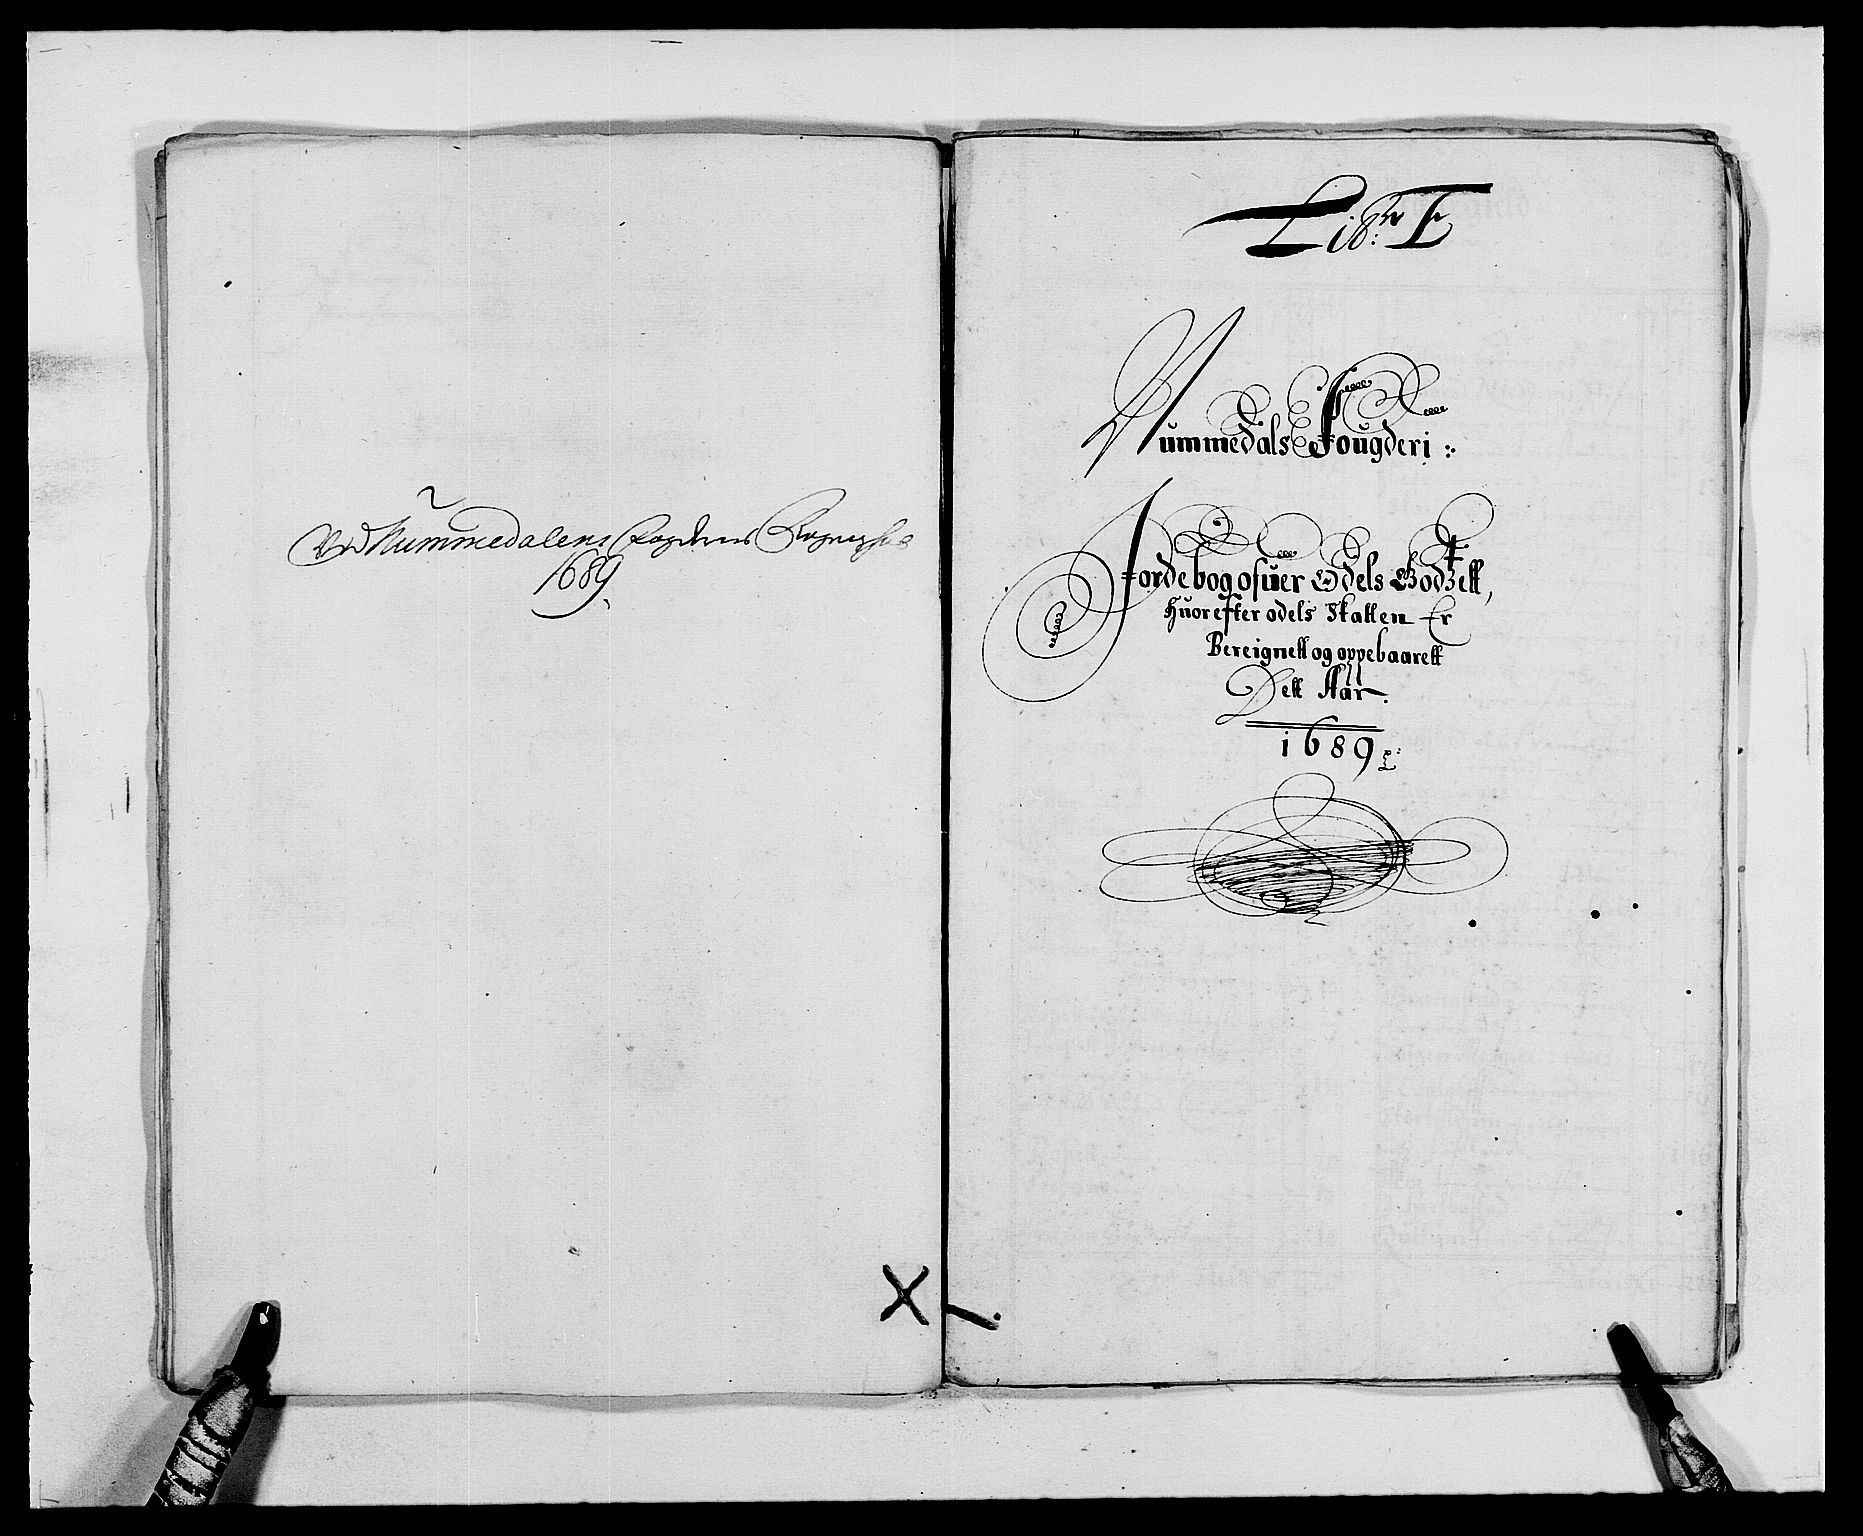 Ved Nummedalens Fogderies Regenskab
1689
Lib:r F
Nummedals Fougderi:
Jordebog ofuer Odels Godtzett,
Huorefter odels Skatten Er
Bereignett og oppebaarett
Dett Aar.
1689
X